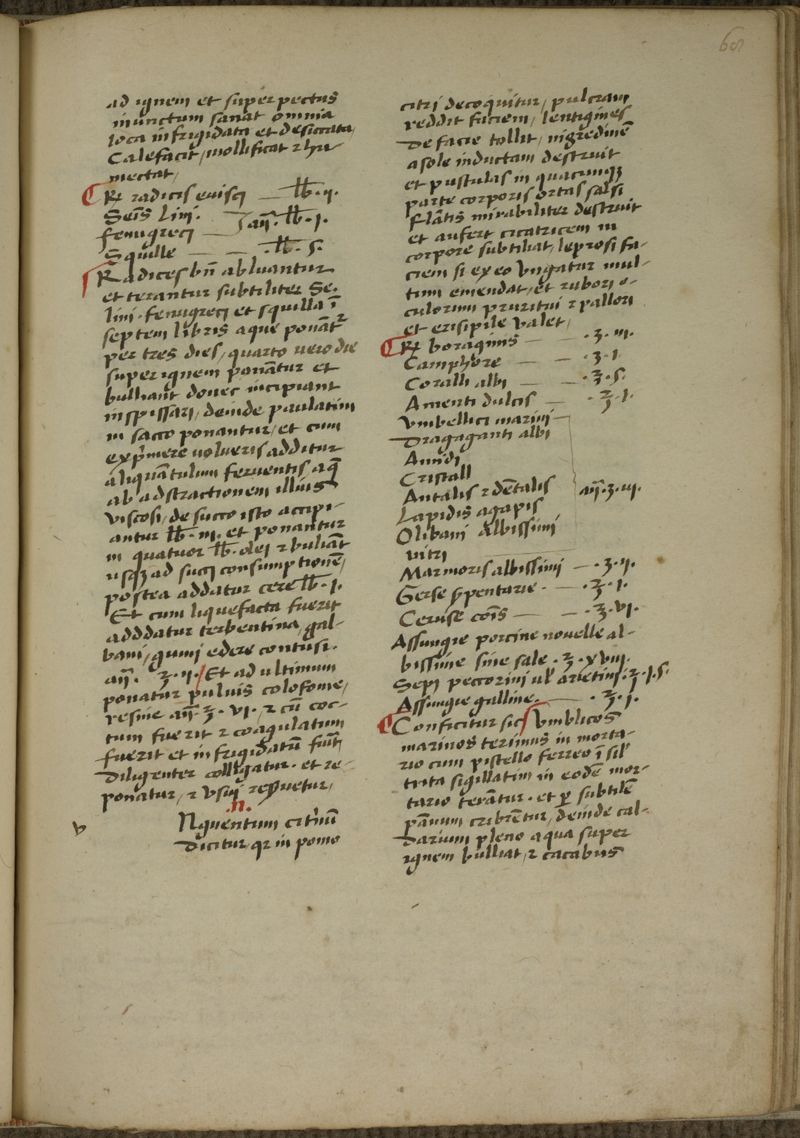 68
ad ignem et super pectus
inunctum sanat omnia
loca infrigidata et desiccata,
Calefacit, mollificat ⁊ hu-
mectat,
℞ radicis euisci — lb. ij.
Seīs Lini.
fenugreci — } añ. lb. j.
Squille — — . lb. s.
Radices bñ abluantur
et terantur subtiliter Se.
lini. fenugreci et squilla ī
septem libris aque ponāt̄
per tres dies, quarto uero die
super ignem ponātur et
bulliant donec incipiant
inspissari, deinde paulatim
in sacco ponantur, et cum
exp̄mere uolueris additur
aliquātulum feruentis aq̄
ab abstractionem illius
viscosi, de succo isto accipi-
antur lb. iij. et ponantur
in quatuor lb. olei ⁊ buliāt
usq̄ ad succi consumptionē,
postea addatur cere lb. j.
Et cum liquefacta fuerit
adddatur terbentina, gal-
bani, gumi edere contusi.
añ. ʒ. ij. / Et ad ultimum
ponatur puluis colofonie,
resine añ ʒ. vi. ⁊ cū coc-
tum fuerit ⁊ coagulatum
fuerit et infrigidatū fuīt
diligenter colligatur. et re-
ponatur, ⁊ vsui reseruetur,
.n.
v Nguentum citrinū
dicitur, qr in pomo
citri decoquitur, pulcram
reddit faciem, lentigines
de facie tollit, nigredinē
a sole inductam destruit
et pustulas in quacunq̄
parte corporis ortas salsi
flāīs mirabiliter destruit
et aufert cicatricem in
corpore subtiliat, leprosi fa-
ciem si ex eo vngatur mul-
tum emendat, et rubori o-
culorum pruritui ⁊ pallori
et erisipile valet,
℞ boraginis — — . ʒ. iij.
Camphore — — . ʒ. j.
Coralli albi — — . ʒ. s.
Amenti dulcis — . ʒ. j.
Vmbellici marini
Dragaganti albi
Amidi
Cristall
Antalis ⁊ dētalis añ. ʒ. iij.
Lapidis agapis
Olibani Albissimi
vitri
Marmoris albissimi — . ʒ. ij.
Gerse s̄pentarie. — . ʒ. j.
Ceruse cōīs — — . ʒ. vi.
Assungie porcine nouelle al-
bissime sine sale . ʒ. xviij.
Sepi pectorini ul' arietini. ʒ. j. s.
Assungie galline. — . ʒ. j.
Conficitur sic Vmblicos
marinos terimus in morta-
rio cum pistello ferreo ī sil'
trita sigillatim in eodē mor-
tario terātur. et p subtilē
pānum cribrētur, deinde cal-
darium pleno aqua super
ignem bulliat, ⁊ cacabus